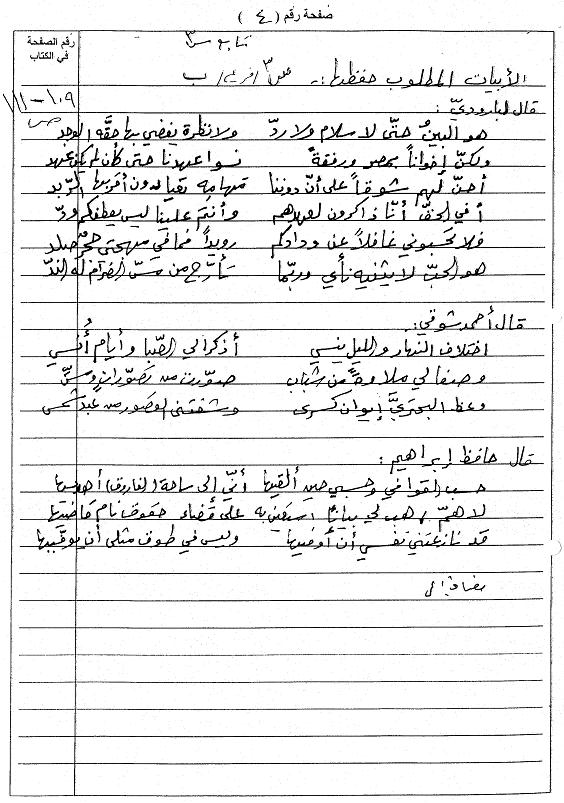 صفحة رقم ( ٤ )
رقم الصفحة في الكتاب
تابع س٣
الأبيات المطلوب حفظها :-
ص ١٠٩ - ١١١
قال البارودي :
هو البين حتى لا سلام ولا رد ولا نظرة يقضي بها حقه الوجد
ولكن إخواناً بمصر ورفقة نسوا عهدنا حتى كأن لم يكن عهد
أحن لهم شوقاً على أن دوننا مهامه تعيا دون أقربها الربد
أفي الحق أنا ذاكرون لعهدهم وأنتم علينا ليس يعطفكم ود
فلا تحسبوني غافلاً عن ودادكم رويداً فما في مهجتي حجر صلد
هو الحب لا يثنيه نأي وربما تأرج من مس الضرام له الند
قال أحمد شوقي :-
اختلاف النهار والليل ينسي أذكرا لي الصبا وأيام أُنسي
وصفا لي ملاوة من شباب صورت من تصورات ومس
وعظ البحتريَّ إيوان كسرى وشفتني القصور من عبد شمس
قال حافظ إبراهيم :
حسب القوافي وحسبي حين ألقيها أنّي إلى ساحة (الفاروق) أهديها
لا همّ ، هب لي بياناً أستعين به على قضاء حقوق نام قاضيها
قد نازعتني نفسي أن أوفيها وليس في طوق مثلي أن يوفيها